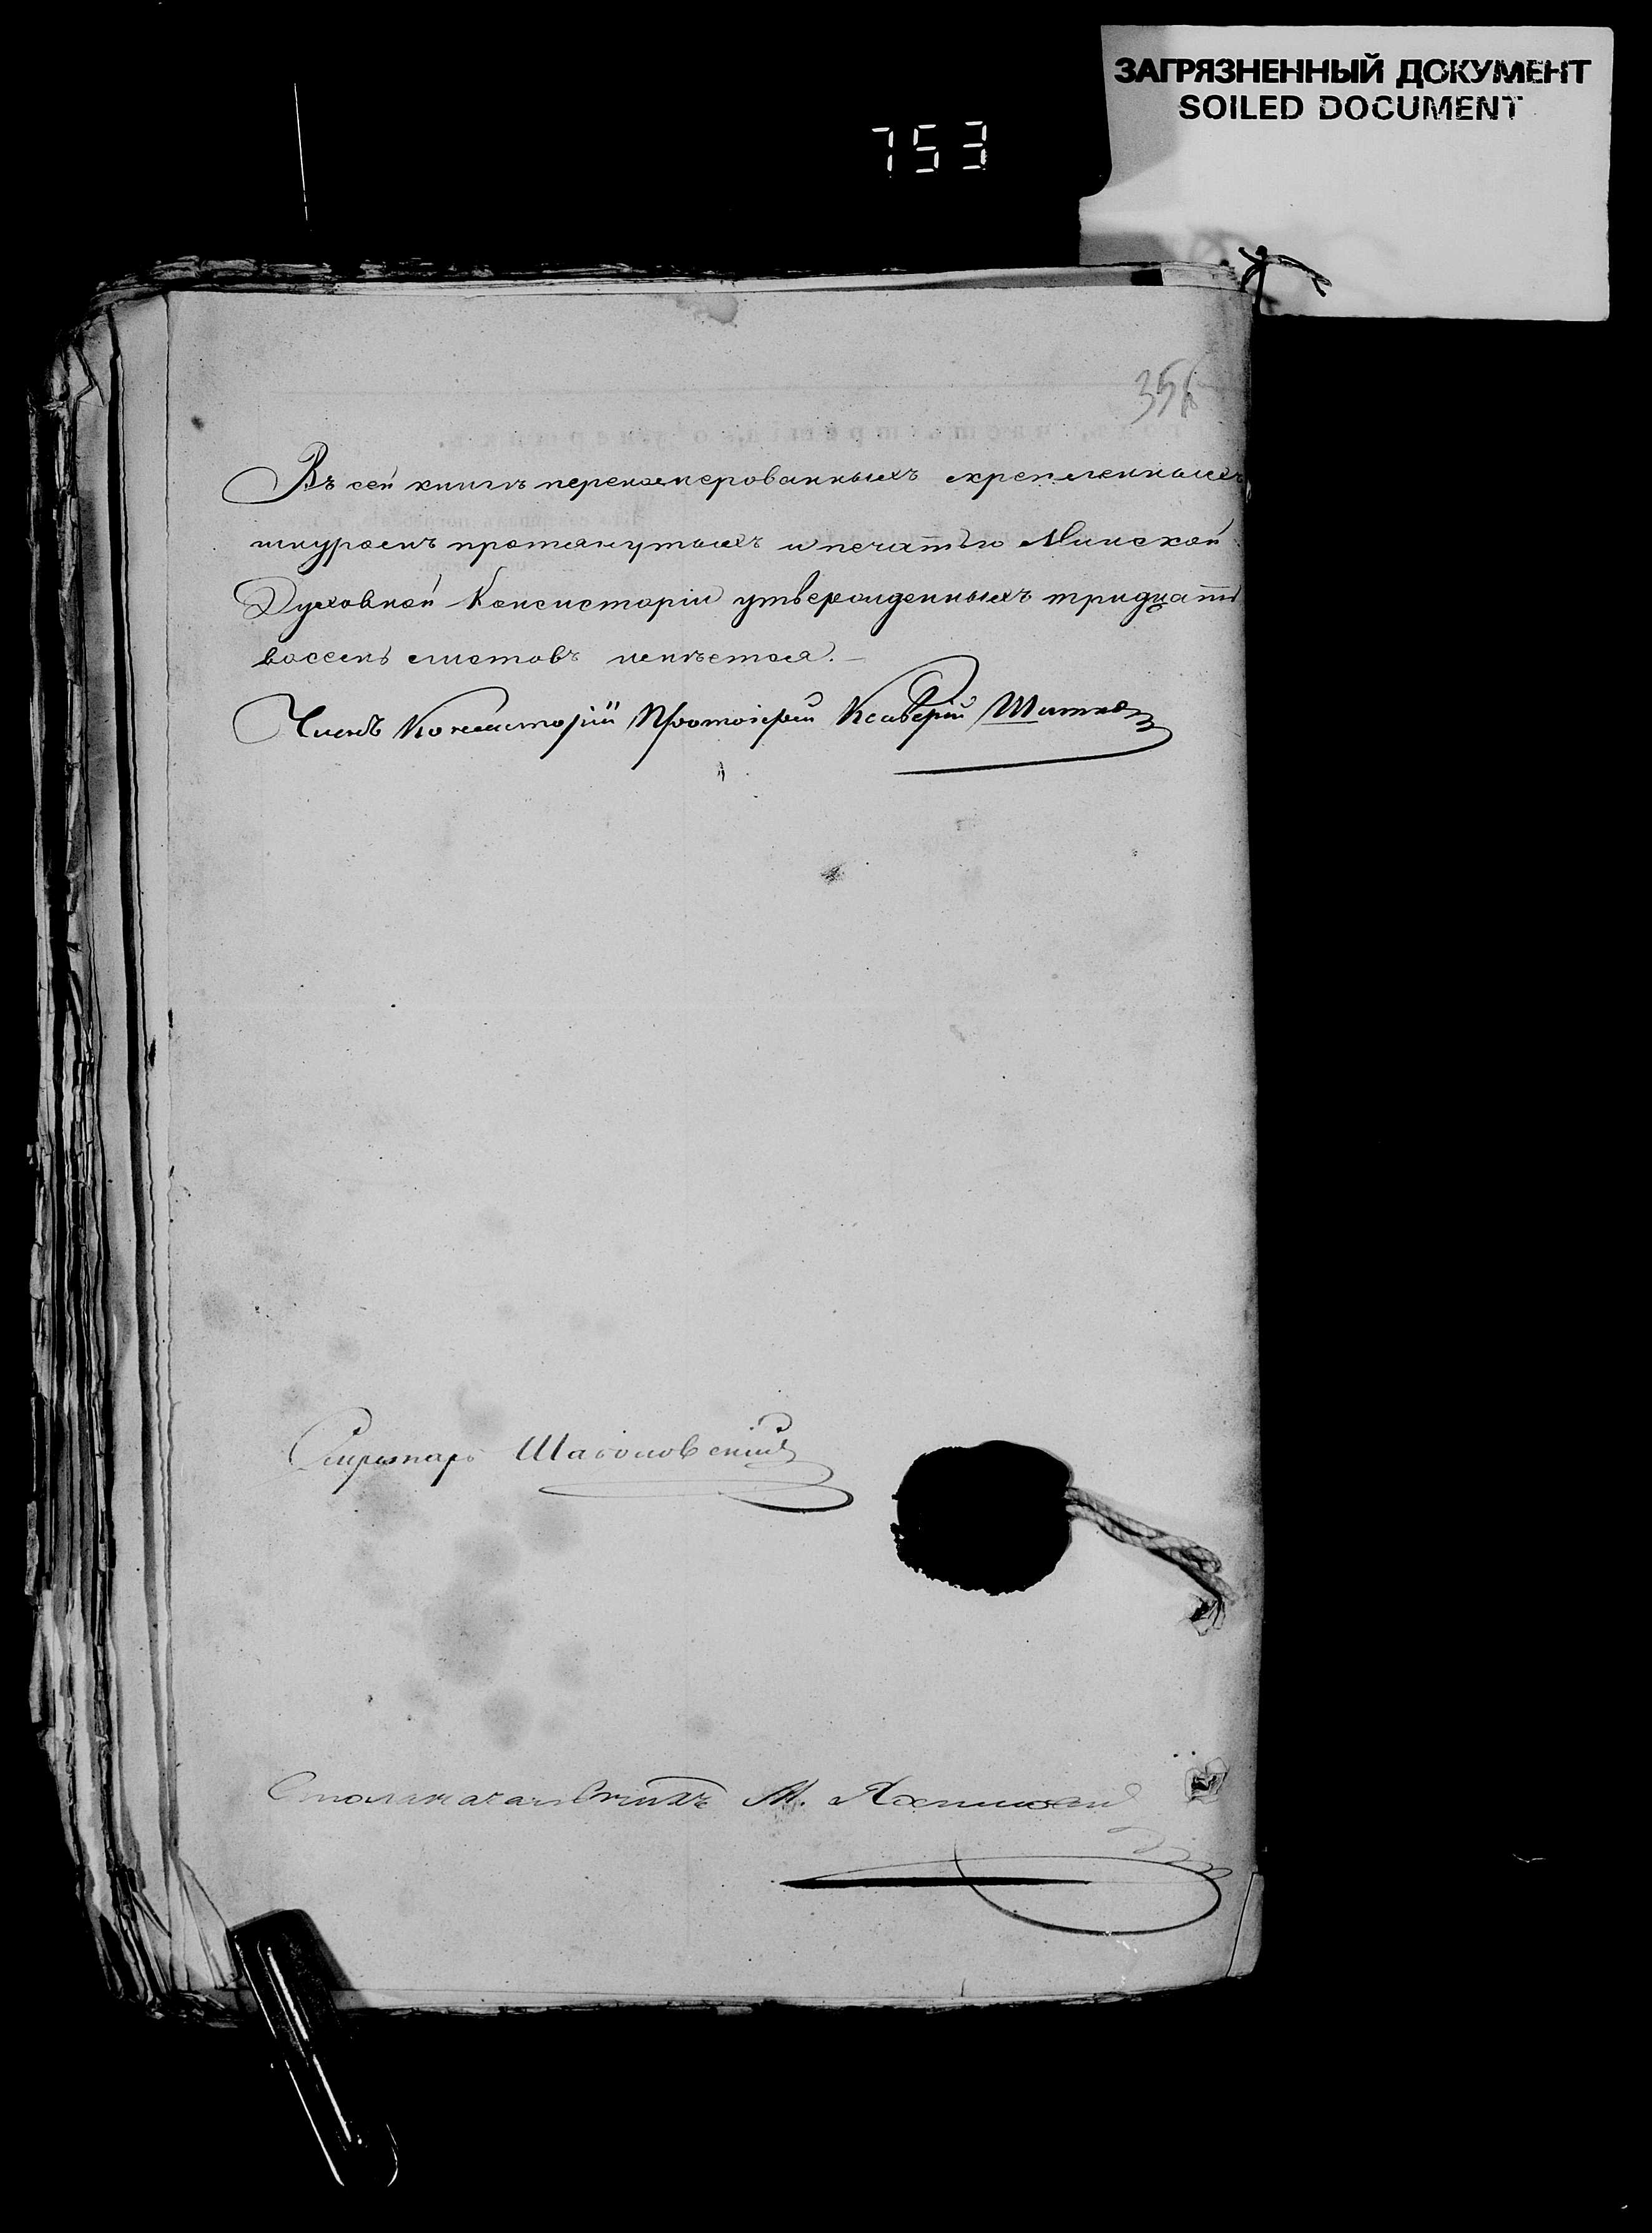 ЗАГРЯЗНЕННЫЙ ДОКУМЕНТ
SOILED DOCUMENT
753
356
Въ сей книгѣ переномерованныхъ скрепленныхъ
шнуромъ протянутыхъ и печатью Минской
Духовной Консисторіи утвержденныхъ тридцать
восемь листовъ имѣется.
Членъ Консисторіи Протоіерей Ксаверій
Секретарь
Столоначальникъ М.